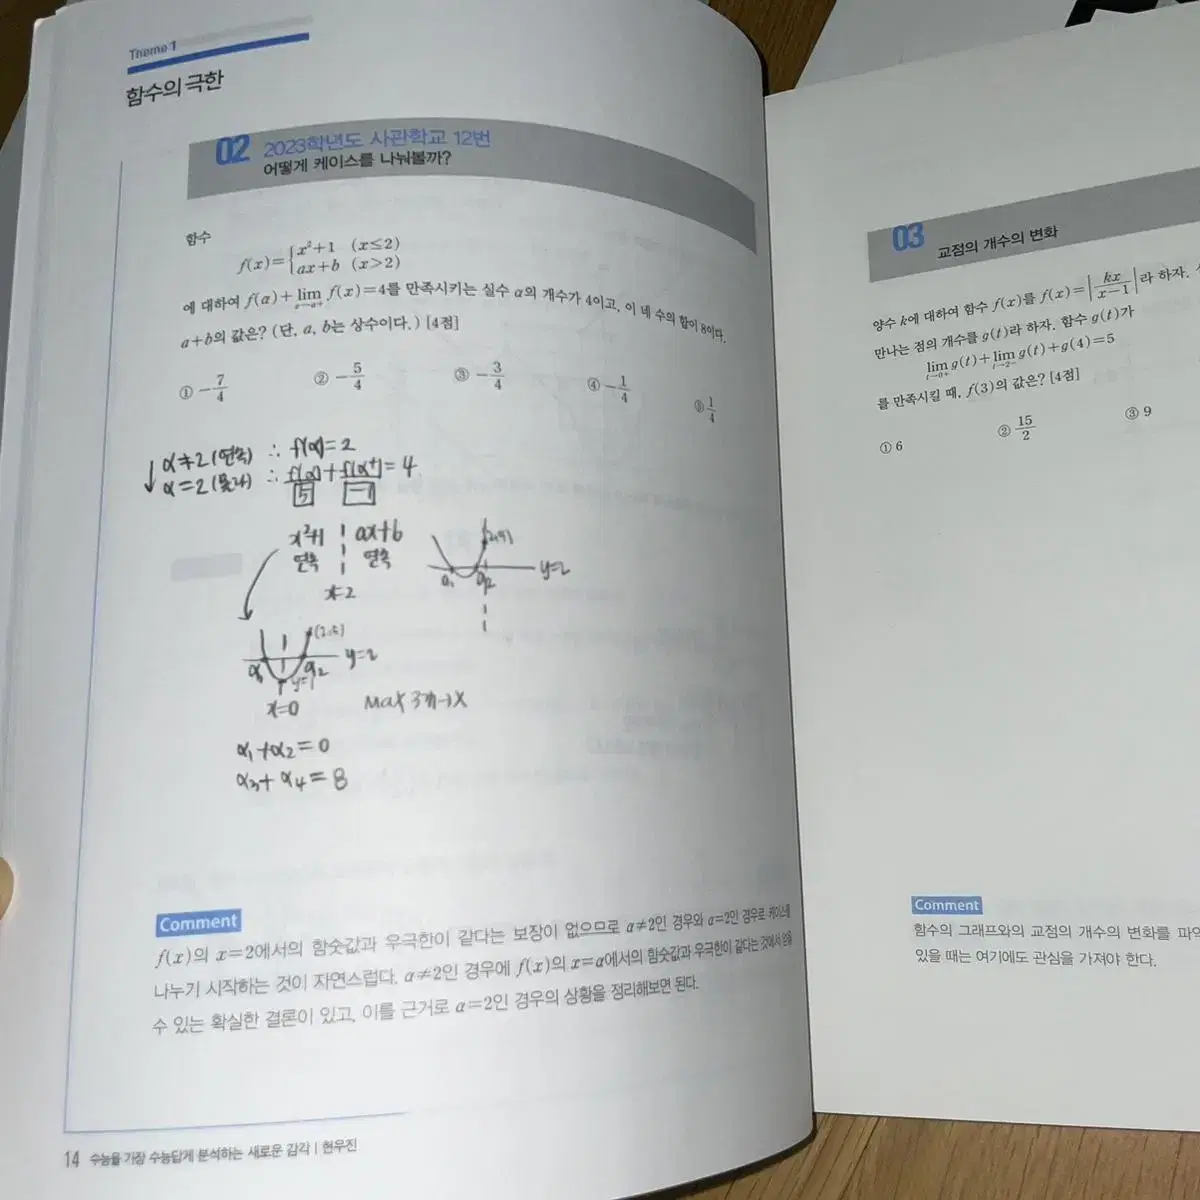 Theme 1
함수의 극한
02 2023학년도 사관학교 12번
어떻게 케이스를 나눠볼까?
함수
f(x)={x²+1 (x≤2)
ax+b (x>2)
에 대하여 f(α)+lim f(x)=4를 만족시키는 실수 α의 개수가 4이고, 이 네 수의 합이 8이다.
x→α+
a+b의 값은? (단, a, b는 상수이다.) [4점]
① -7/4 ② -5/4 ③ -3/4 ④ -1/4 ⑤ 1/4
α≠2 (연속) ∴ f(α)=2
α=2 (몰라) ∴ f(α)+f(α+)=4
5 -1
x²+1 ax+b
연속 연속
x=2
y=2
α₁ α₂
(2,5)
y=2
α₂
y=1
x=0
Max 3개→X
α₁+α₂=0
α₃+α₄=8
Comment
f(x)의 x=2에서의 함숫값과 우극한이 같다는 보장이 없으므로 α≠2인 경우와 α=2인 경우로 케이스를
나누기 시작하는 것이 자연스럽다. α≠2인 경우에 f(x)의 x=α에서의 함숫값과 우극한이 같다는 것에서 얻을
수 있는 확실한 결론이 있고, 이를 근거로 α=2인 경우의 상황을 정리해보면 된다.
14 수능을 가장 수능답게 분석하는 새로운 감각 | 현우진
03 교점의 개수의 변화
양수 k에 대하여 함수 f(x)를 f(x)=|kx/(x-1)|라 하자.
만나는 점의 개수를 g(t)라 하자. 함수 g(t)가
lim g(t)+lim g(t)+g(4)=5
t→0+ t→2-
를 만족시킬 때, f(3)의 값은? [4점]
① 6 ② 15/2 ③ 9
Comment
함수의 그래프와의 교점의 개수의 변화를
있을 때는 여기에도 관심을 가져야 한다.